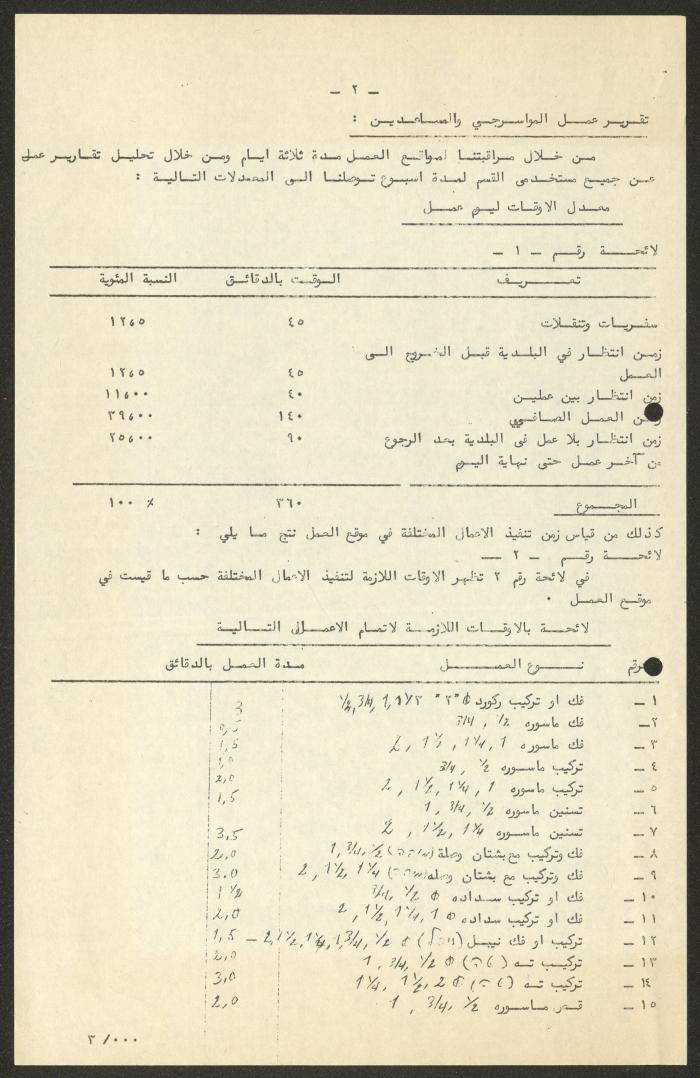 ـ ٢ ـ
تقرير عمل المواسرجي والمساعدين :
من خلال مراقبتنا لمواقع العمل مدة ثلاثة ايام ومن خلال تحليل تقارير عمل
عن جميع مستخدمى القسم لمدة اسبوع توصلنا الى المعدلات التالية :
معدل الاوقات ليوم عمل
لائحة رقم ـ ١ ـ
تعريف الوقت بالدقائق النسبة المئوية
سفريات وتنقلات ٤٥ ١٢،٥
زمن انتظار في البلدية قبل الخروج الى
العمل ٤٥ ١٢،٥
زمن انتظار بين عملين ٤٠ ١١،٠٠
العمل الصافي ١٤٠ ٣٩،٠٠
زمن انتظار بلا عمل فى البلدية بعد الرجوع ٩٠ ٢٥،٠٠
من آخر عمل حتى نهاية اليوم
المجموع ٣٦٠ ١٠٠ ٪
كذلك من قياس زمن تنفيذ الاعمال المختلفة في موقع العمل نتج ما يلي :
لائحة رقم ـ ٢ ـ
في لائحة رقم ٢ تظهر الاوقات اللازمة لتنفيذ الاعمال المختلفة حسب ما قيست في
موقع العمل ٠
لائحة بالاوقات اللازمة لاتمام الاعمال التالية
رقم نوع العمل مدة العمل بالدقائق
١ ـ فك او تركيب ركورد 3
٢ ـ فك ماسوره ½ , ¾
٣ ـ فك ماسوره 1 , 1¼ , 1½ , 2 1,5
٤ ـ تركيب ماسوره ½ , ¾
٥ ـ تركيب ماسوره 1 , 1¼ , 1½ , 2 2,0
٦ ـ تسنين ماسوره ½ , ¾ , 1 1,5
٧ ـ تسنين ماسوره 1¼ , 1½ , 2 3,5
٨ ـ فك وتركيب مع بشتان وصلة ½ , ¾ , 1 2,0
٩ ـ فك وتركيب مع بشتان وصله 1¼ , 1½ , 2 3,0
١٠ ـ فك او تركيب سداده Φ ½ , ¾ 1½
١١ ـ فك او تركيب سداده Φ 1 , 1¼ , 1½ , 2 2,0
١٢ ـ تركيب او فك نيبل (ניפל) Φ ½ , ¾ , 1 , 1¼ , 1½ , 2 ـ 1,5
١٣ ـ تركيب ته (טה) Φ ½ , ¾ , 1 2,0
١٤ ـ تركيب ته (טה) Φ 2 , 1½ , 1¼ 3,0
١٥ ـ قص ماسوره ½ , ¾ , 1 2,0
٣ /٠٠٠